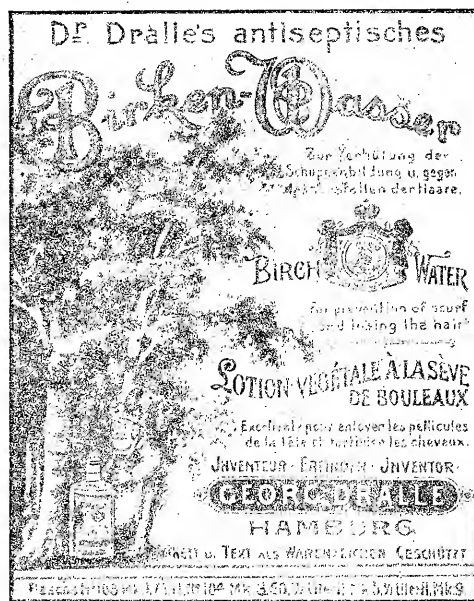 Dr. Dralle's antiseptisches
Birken-Wasser
Zur Verhütung der
Schuppenbildung u. gegen
Ausfallen der Haare.
BIRCH WATER
for prevention of scurf
and losing the hair
LOTION VEGÉTALE À LA SÈVE
DE BOULEAUX
Excellent pour enlever les pellicules
de la tête et fortifier les cheveux.
INVENTEUR · ERFINDER · INVENTOR
GEORG DRALLE
HAMBURG
U. TEXT ALS WARENZEICHEN GESCHÜTZT